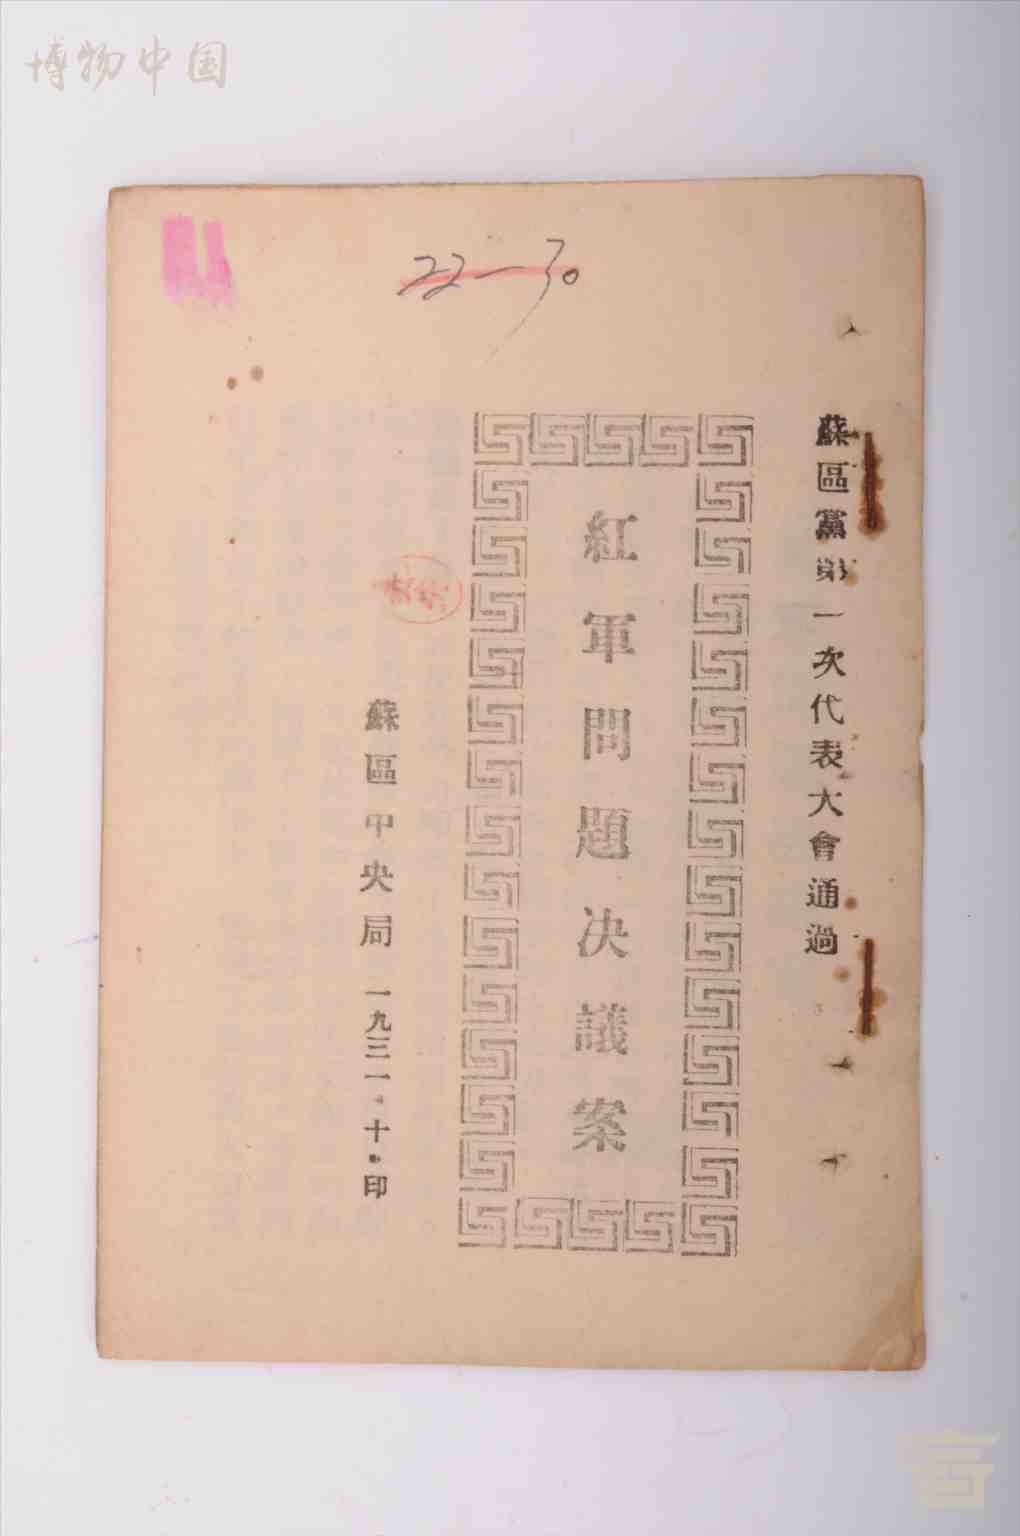 博物中国
22—30
蘇區黨第一次代表大會通過
紅軍問題決議案
蘇區中央局 一九三一·十·印